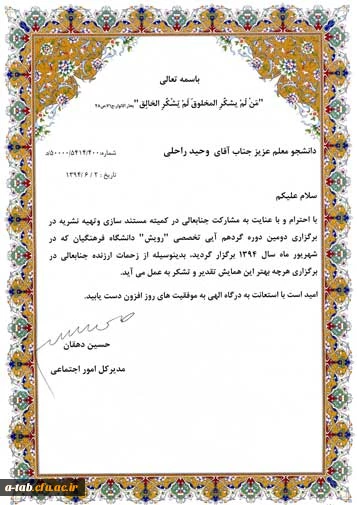 باسمه تعالی
"مَنْ لَمْ یَشکُرِ المَخلوقَ لَمْ یَشْکُرِ الخالِق" بحارالانوار،ج۷۱،ص۳۸
دانشجو معلم عزیز جناب آقای وحید راحلی شماره:۵۰۰۰۰/۵۴۱۴/۴۰۰/د
تاریخ : ۱۳۹۴/۶/۲
سلام علیکم
با احترام و با عنایت به مشارکت جنابعالی در کمیته مستند سازی وتهیه نشریه در
برگزاری دومین دوره گردهم آیی تخصصی "رویش" دانشگاه فرهنگیان که در
شهریور ماه سال ۱۳۹۴ برگزار گردید، بدینوسیله از زحمات ارزنده جنابعالی در
برگزاری هرچه بهتر این همایش تقدیر و تشکر به عمل می آید.
امید است با استعانت به درگاه الهی به موفقیت های روز افزون دست یابید.
حسین دهقان
مدیرکل امور اجتماعی
a-tab.cfu.ac.ir